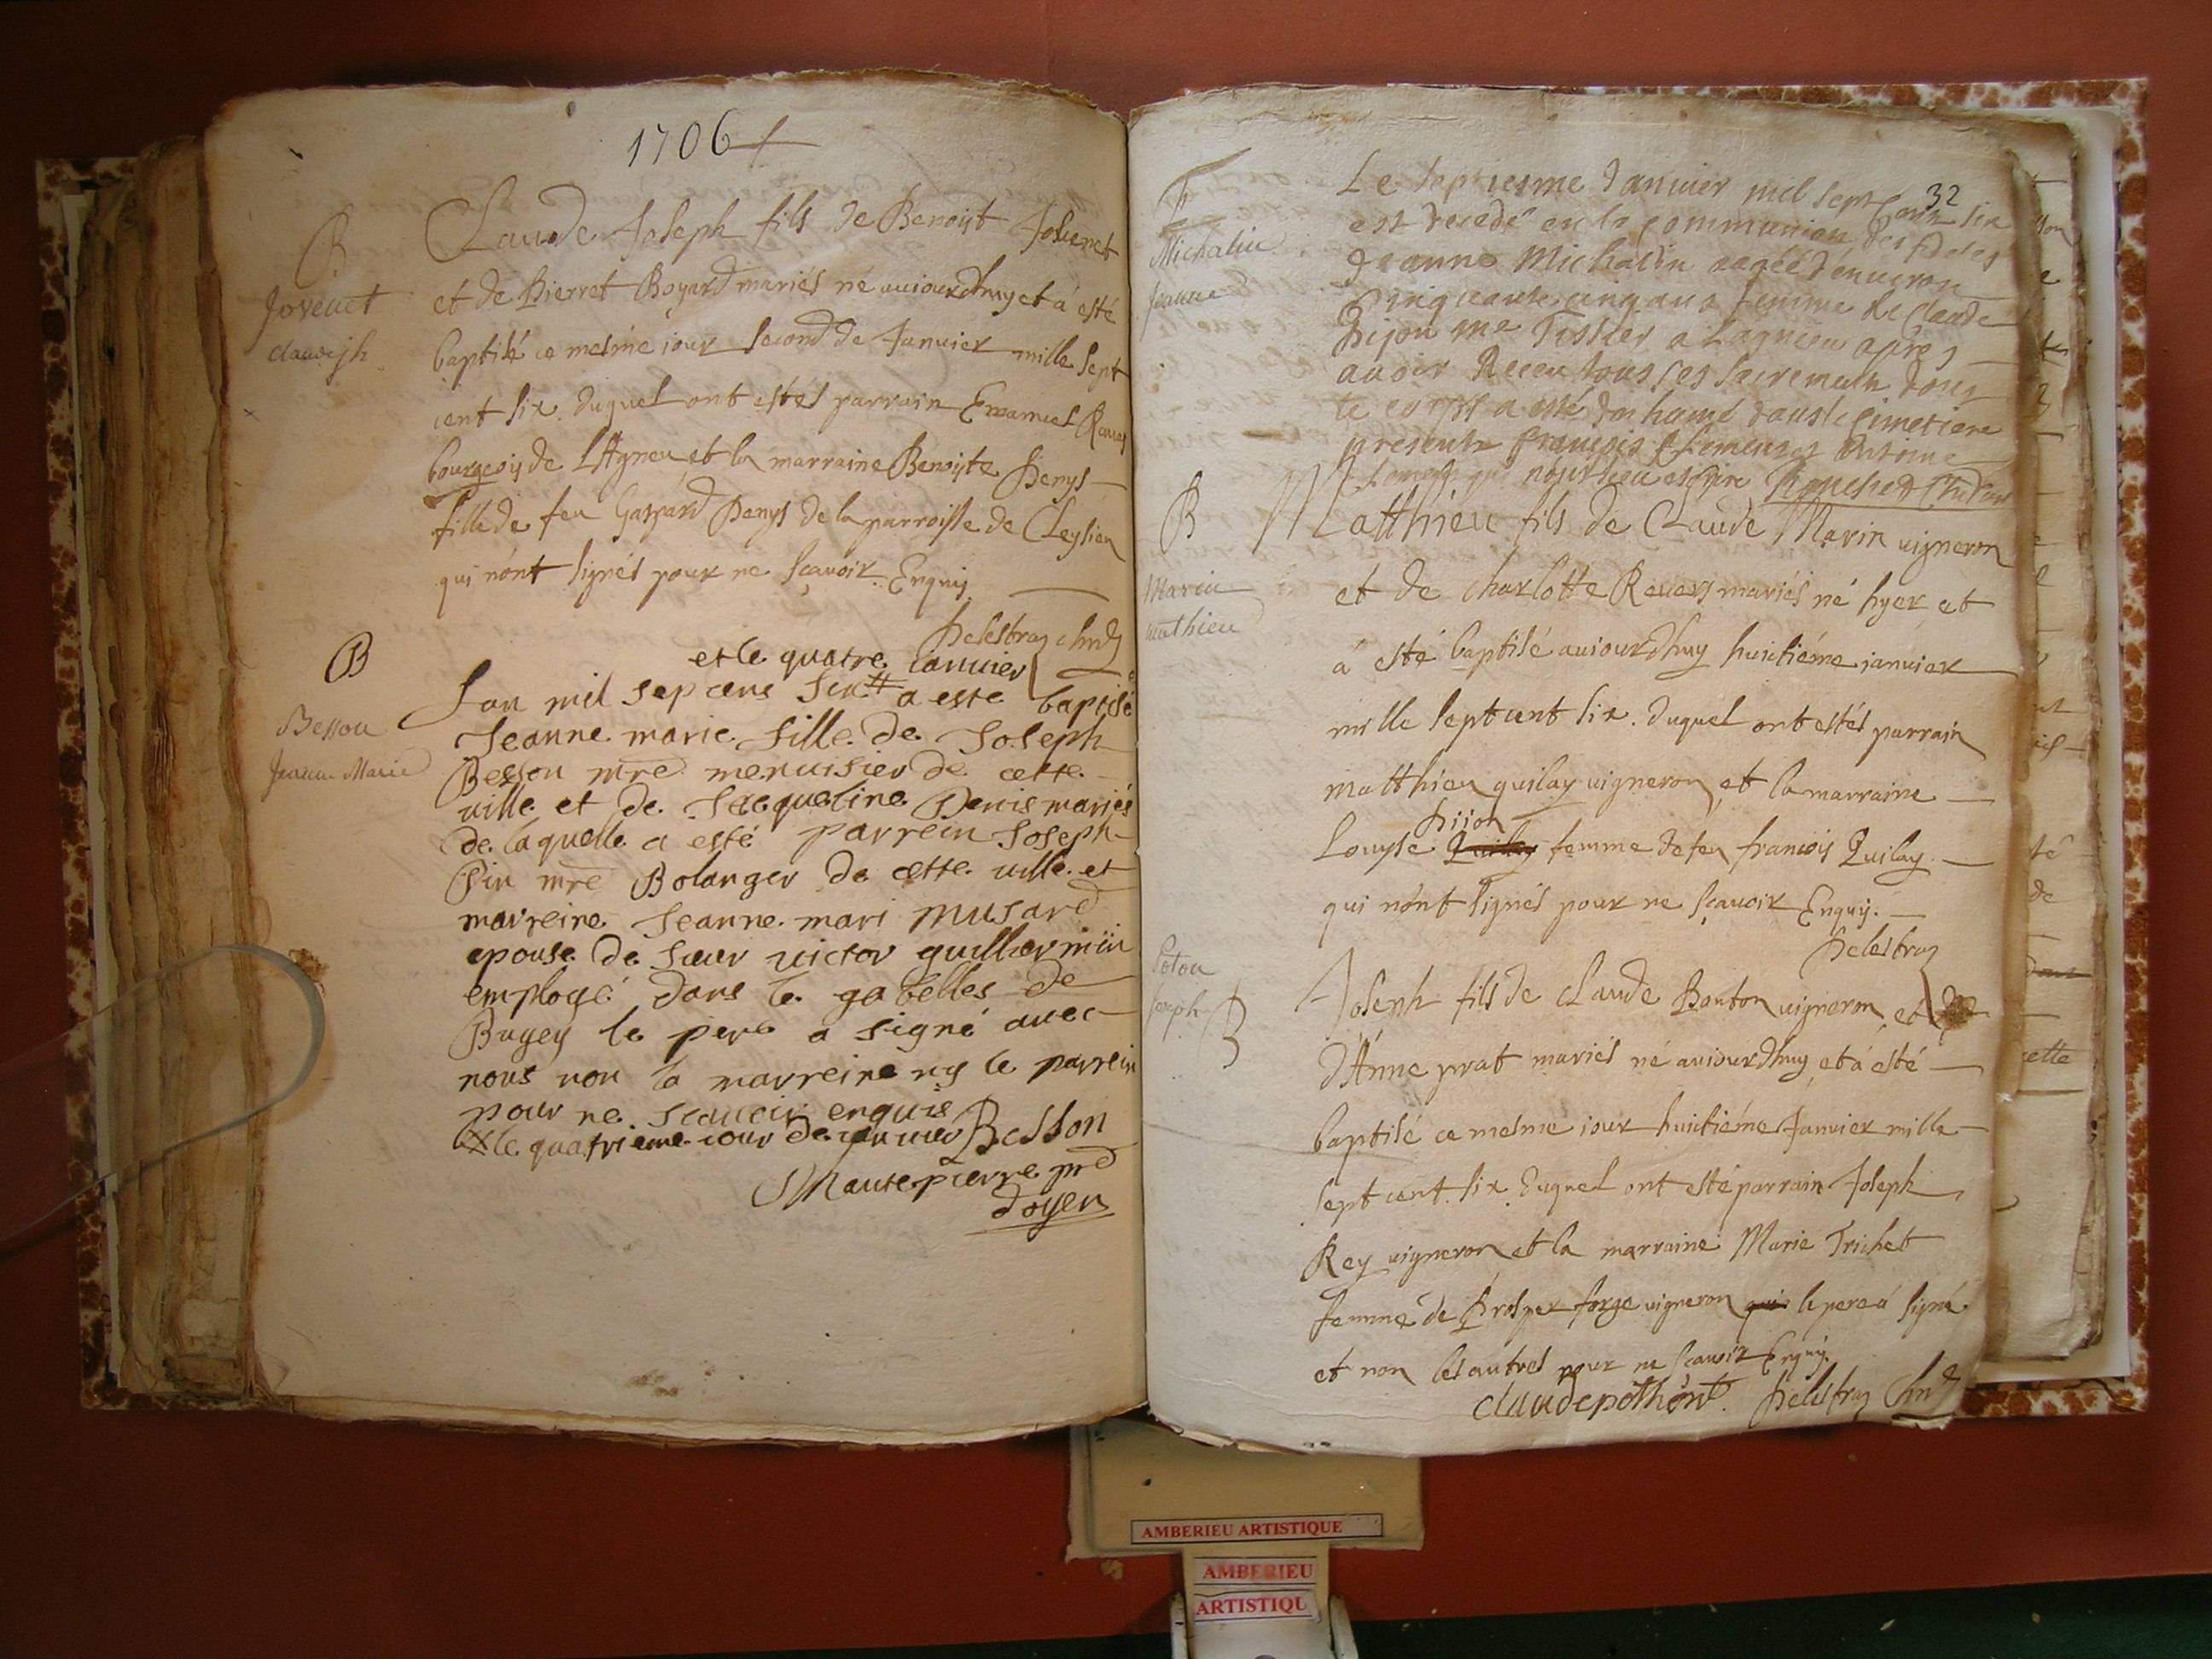 1706
B
Jovenct
claude jh
Claude Joseph fils de Benoist Jovenet
et de Pierret Boyard mariés né auiourdhuy et à esté
baptisé ce mesme iour second de Januier mille sept
cent six. duquel ont estés parrain Emanuel
bourgeois de LAgneu et la marraine Benoiste Denys
fille de feu Gaspard Denys de la parroisse de Cleysieu
qui nont signés pour ne sçauoir Enquis
Delestraz
B
Besson
Jeanne Marie
et le quatre ianuier
Lan mil sep cens six a esté baptisé
Jeanne marie fille de Joseph
Besson mre menuisier de cette
uille et de Jacqueline Denis mariés
de laquelle a esté parrein Joseph
Pin mre Bolanger de cette uille et
marreine Jeanne mari Musard
epouse de sieur victor guillermin
employé dans le gabelles de
Bugey le pere a signé auec
nous non la marreine ny le parrein
pour ne scauoir enquis
le quatrieme iour de januier Besson
Mantepierre
doyen
32
Michalin
Jeanne
Le septiesme Januier mil sept cent six
est decedé en la communion des fideles
Jeanne Michalin aagée denuiron
Cinquante cinq ans femme de Claude
Dijon me Tissier a Lagnieu apres
auoir Receu tous ses sacremens dont
le corps a esté Inhumé dans le cimetiere
presents françois Clemens et Antoine
B
Marin
mathieu
Matthieu fils de Claude Marin uigneron
et de Charlotte Reuers mariés né hyer et
à esté baptisé auiourdhuy huictiéme ianuier
mille sept cent six. duquel ont estés parrain
matthieu quilay uigneron et la marraine
Dijon
Louyse Quilay femme de feu francois Quilay
qui nont signés pour ne sçauoir Enquis.
Delestraz
Poton
Joseph
B
Joseph fils de Claude Bonton uigneron et
d'Anne prat mariés né auiourdhuy et à esté
baptisé ce mesme iour huictiéme Januier mille
sept cent six duquel ont esté parrain Joseph
Rey uigneron et la marraine Marie Trichet
femme de Prosper forge uigneron qui le pere à signé
et non les autres pour ne sçauoir Enquis.
claude pothont. Delestraz
AMBERIEU ARTISTIQUE
AMBERIEU
ARTISTIQU